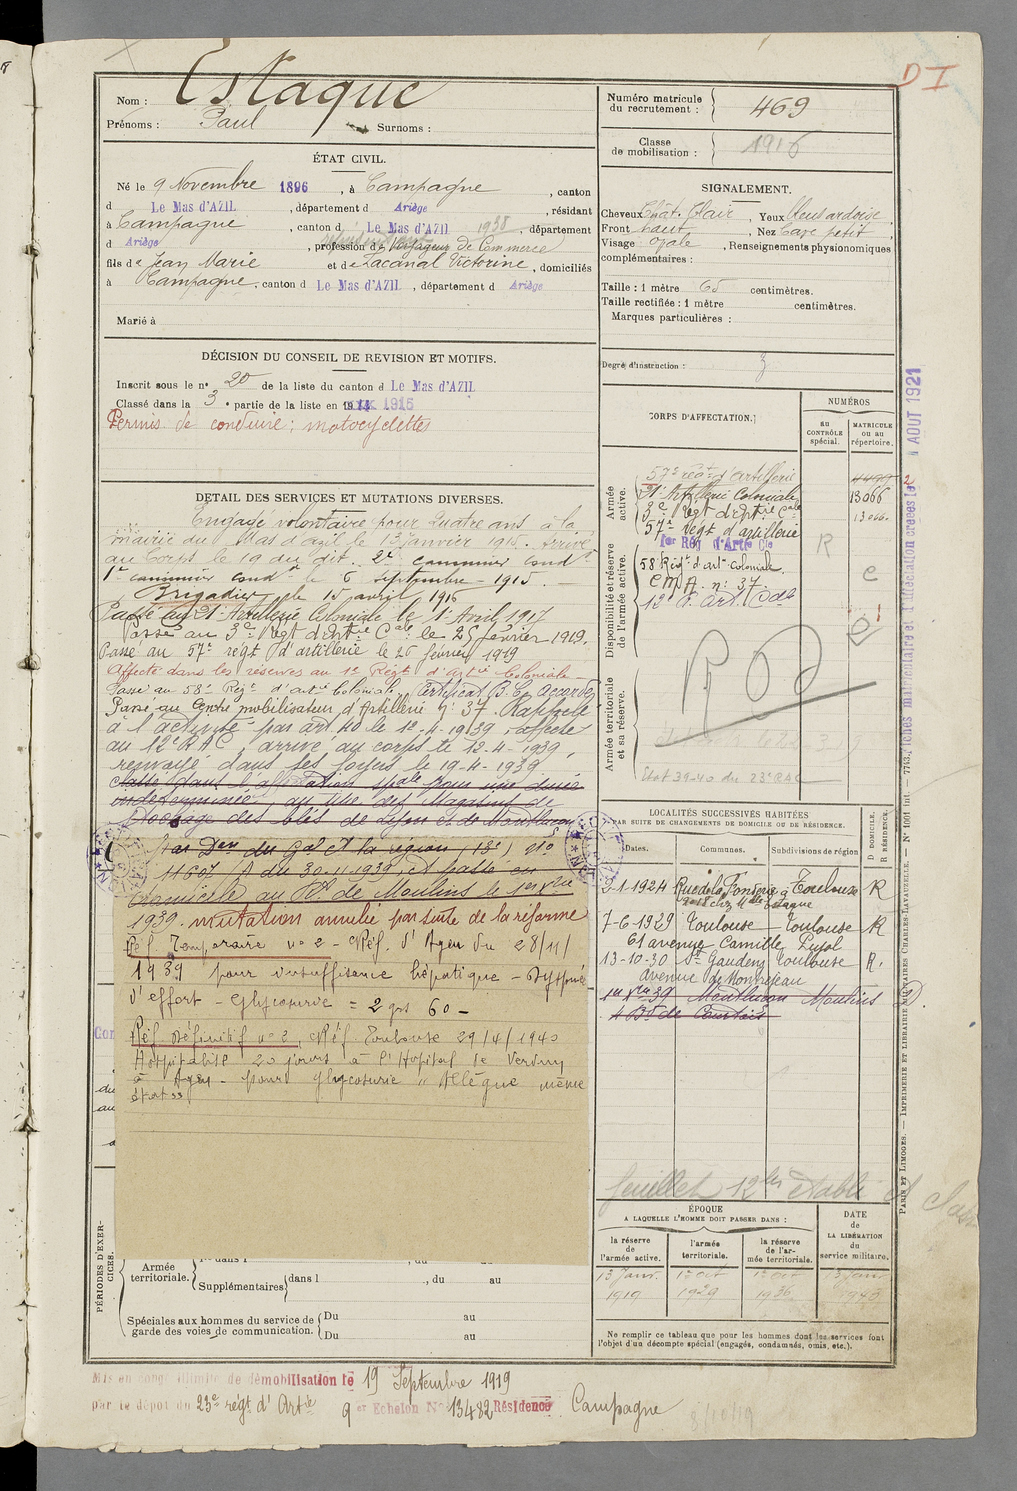 Nom : Estaque
Prénoms : Paul Surnoms :
ÉTAT CIVIL.
Né le 9 Novembre 1896, à Campagne, canton
d Le Mas d'AZIL, département d Ariège, résidant
à Campagne, canton d Le Mas d'AZIL 1938, département
d Ariège, profession d Voyageur de Commerce
fils de Jean Marie et de Lacanal Victorine, domiciliés
à Campagne, canton d Le Mas d'AZIL, département d Ariège
Marié à
DÉCISION DU CONSEIL DE REVISION ET MOTIFS.
Inscrit sous le n° 20 de la liste du canton d Le Mas d'AZIL
Classé dans la 3e partie de la liste en 1915
Permis de conduire : motocyclettes
DETAIL DES SERVICES ET MUTATIONS DIVERSES.
Engagé volontaire pour quatre ans à la
mairie du Mas d'azil le 13 Janvier 1915. Arrivé
au Corps le 19 du dit. 2e canonnier condr
1er canonnier condr le 6 septembre 1915.
Brigadier le 15 avril 1916
Passé au 21e Artillerie Coloniale le 1er Avril 1917
Passé au 3e Régt d'Artie Cale le 25 février 1919.
Passé au 57e régt d'artillerie le 26 février 1919
Affecté dans les réserves au 1er Régt d'Artie Coloniale
Passé au 58e Régt d'artie Coloniale. Certificat B.E. accordé
Passé au Centre mobilisateur d'Artillerie n° 37. Rappelé
à l'activité par art. 40 le 12-4-1939, affecté
au 12e RAC, arrivé au corps le 12-4-1939,
renvoyé dans ses foyers le 19-4-1939
Classé dans l'affectation spale pour une durée
indéterminée, au titre des Magasins de
Stockage des blés de Lyon et de Montluçon
par Don du Gal Ct la région (13e) n°
11607 /A du 30-11-1939, et passé en
domicile au Rt de Moulins le 1er Xbre
1939. mutation annulée par suite de la réforme
Réf. Temporaire n° 2 - C. Réf. d'Agen du 28/11/
1939 pour insuffisance hépatique - Dyspnée
d'effort - Glycosurie = 2 grs 60 -
Réf. Définitif n° 2, C. Réf. Toulouse 29/4/1940
Hospitalisé 20 jours à l'Hopital
à Agen - pour glycosurie " Allègue même
PÉRIODES D'EXERCICES.
Armée territoriale.
Supplémentaires dans l , du au
Spéciales aux hommes du service de garde des voies de communication. Du au
Du au
Mis en congé illimité de démobilisation le 19 Septembre 1919
par le dépôt du 23e régt d'Artie 9 er Echelon N° 13482 Résidence Campagne
D I
Numéro matricule du recrutement : 469
Classe de mobilisation : 1916
SIGNALEMENT.
Cheveux Chât. Clair, Yeux bleu ardoisé
Front haut, Nez Cave petit
Visage ovale, Renseignements physionomiques
complémentaires :
Taille : 1 mètre 65 centimètres.
Taille rectifiée : 1 mètre centimètres.
Marques particulières :
Degré d'instruction : 3
CORPS D'AFFECTATION.
NUMÉROS
au CONTRÔLE spécial.
MATRICULE ou au répertoire.
Armée active.
57e régt d'Artillerie
21e Artillerie Coloniale 13066
3e Régt d'Artie Cale 13066
57e Régt d'artillerie
1er Rég d'Artie Cle
Disponibilité et réserve de l'armée active.
58 Régt d'artie coloniale.
C.M.A. n° 37.
12e R. Art. Cale
R
e
Armée territoriale et sa réserve.
Etat 39-40 du 23e RAC
LOCALITÉS SUCCESSIVES HABITÉES
PAR SUITE DE CHANGEMENTS DE DOMICILE OU DE RÉSIDENCE.
Dates. Communes. Subdivisions de région D DOMICILE. R RÉSIDENCE.
2-1-1924 Rue de la Fonderie à Toulouse R
n° 18 chez Mlle Estaque
7-6-1929 Toulouse Toulouse R
61 avenue Camille Pujol
13-10-30 St Gaudens Toulouse R.
avenue de Montréjeau
1er Xbre 39 Montluçon Moulins D.
4 Bd de Courtais
feuillet 12 bis établi
ÉPOQUE
A LAQUELLE L'HOMME DOIT PASSER DANS :
DATE de LA LIBÉRATION du service militaire.
la réserve de l'armée active. l'armée territoriale. la réserve de l'armée territoriale.
13 Janv. 1919 1er Oct 1929 1er Oct 1936 13 Janv 1943
Ne remplir ce tableau que pour les hommes dont les services font
l'objet d'un décompte spécial (engagés, condamnés, omis, etc.).
1 AOUT 1921
PARIS ET LIMOGES. — IMPRIMERIE ET LIBRAIRIE MILITAIRES CHARLES-LAVAUZELLE. — N° 1001 Int. — 7743.